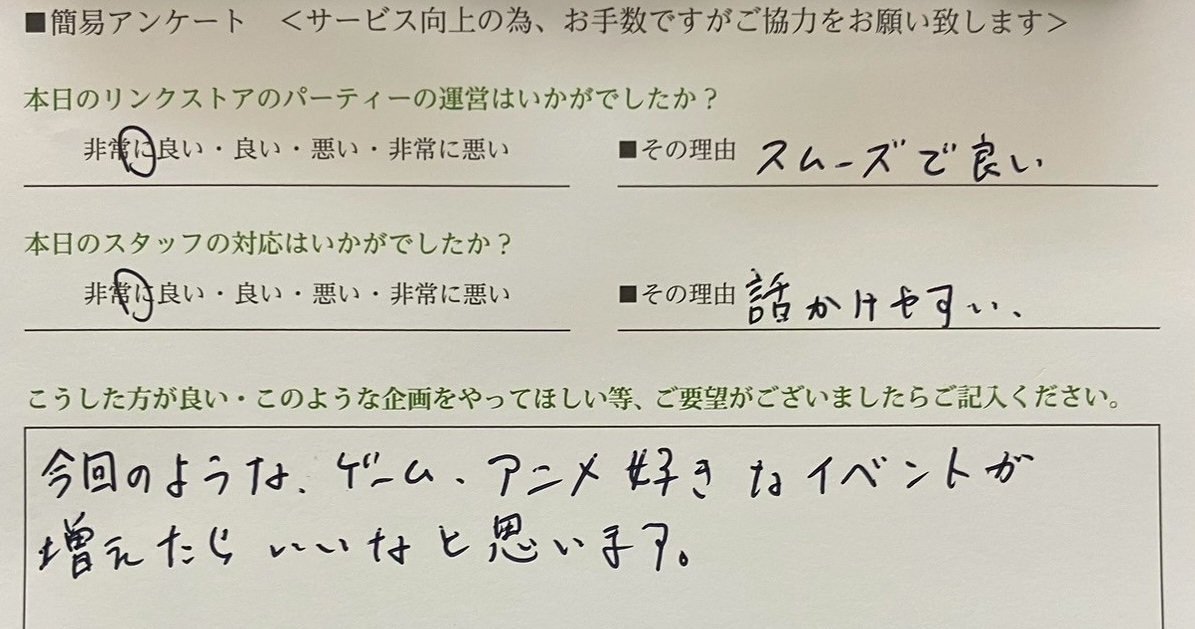 ■簡易アンケート　＜サービス向上の為、お手数ですがご協力をお願い致します＞
本日のリンクストアのパーティーの運営はいかがでしたか？
非常に良い・良い・悪い・非常に悪い　■その理由 スムーズで良い
本日のスタッフの対応はいかがでしたか？
非常に良い・良い・悪い・非常に悪い　■その理由 話かけやすい、
こうした方が良い・このような企画をやってほしい等、ご要望がございましたらご記入ください。
今回のような、ゲーム、アニメ好きなイベントが
増えたらいいなと思います。